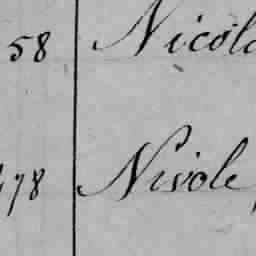 58 Nicol
78 Nivole,